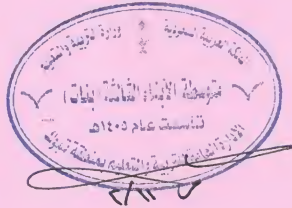 المملكة العربية السعودية
وزارة التربية والتعليم
متوسطة الأبناء الثامنة (بنات)
تأسست عام ١٤٠٥هـ
الإدارة العامة للتربية والتعليم بمنطقة تبوك